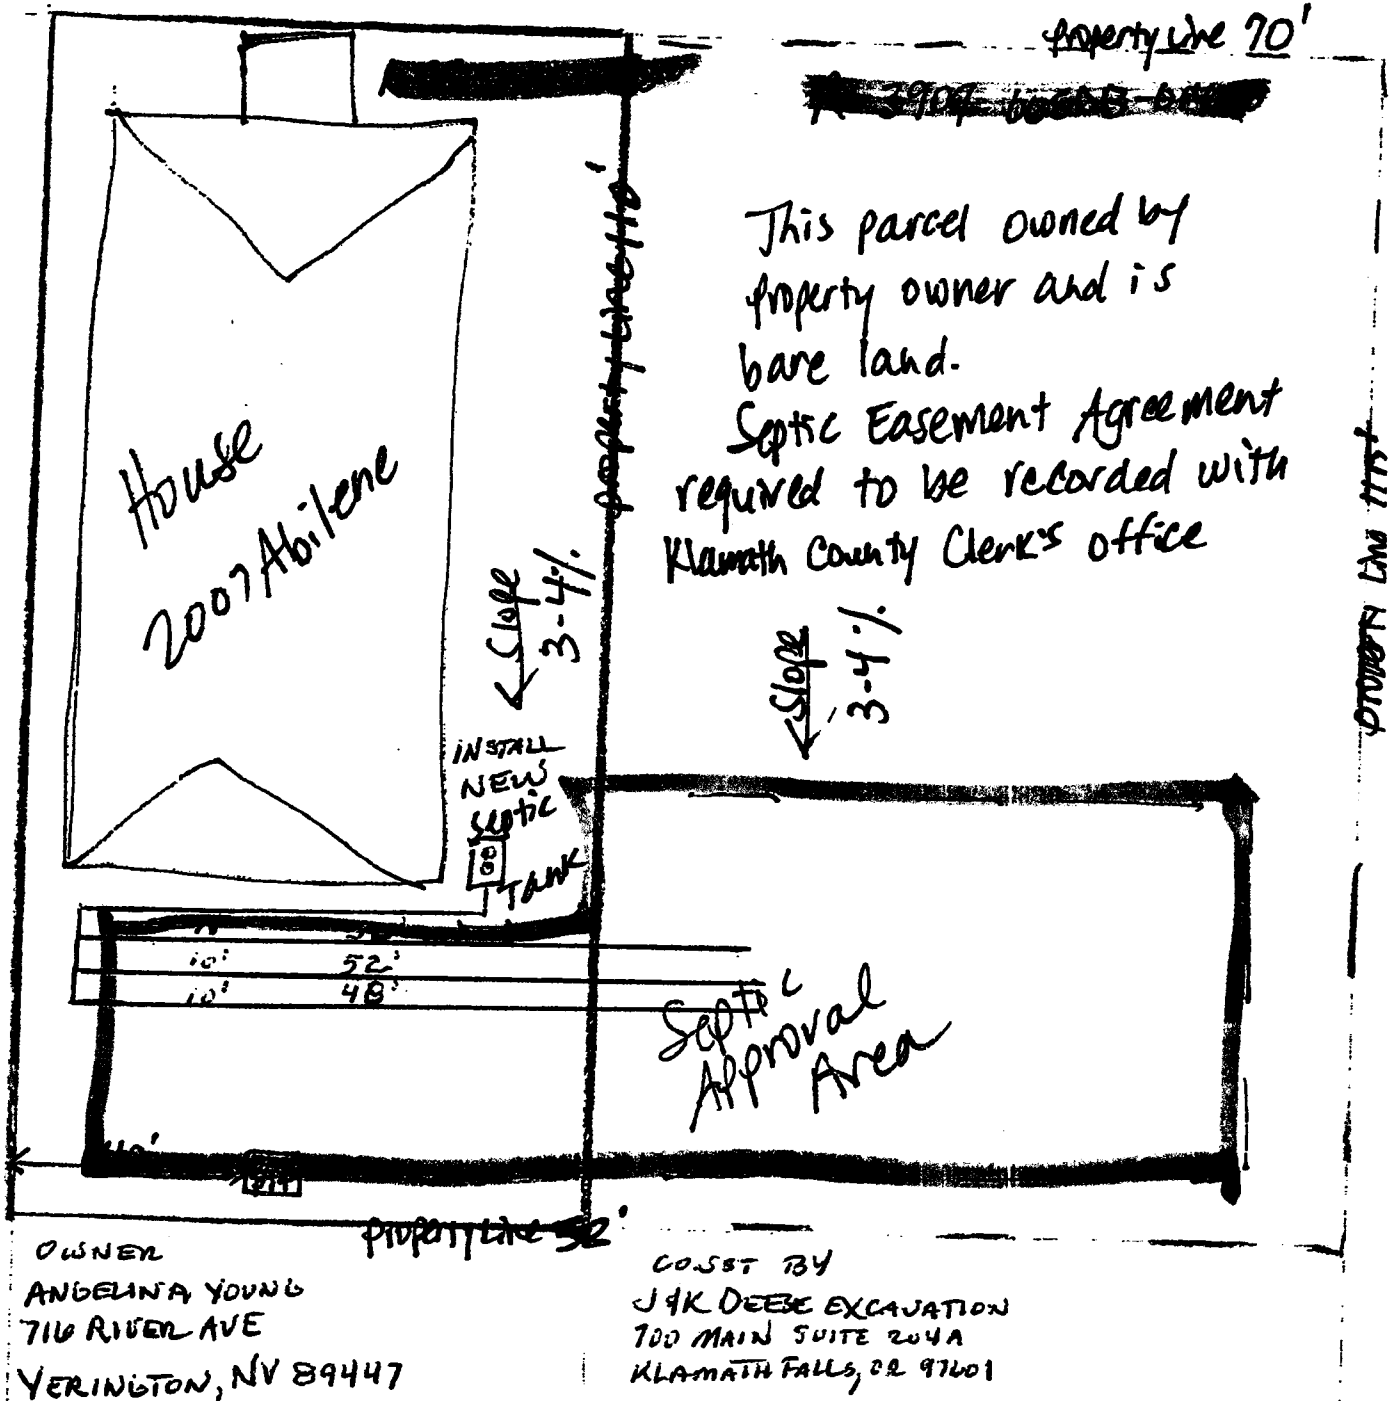 Property Line 70'
Property Line 110'
This parcel owned by
property owner and is
bare land.
Septic Easement Agreement
required to be recorded with
Klamath County Clerk's office
House
2007 Abilene
Slope
3-4%
Slope
3-4%
Property Line
INSTALL
NEW
Septic
TANK
10' 52'
10' 48'
Septic
Approval
Area
Property Line 52'
OWNER
ANGELINA YOUNG
716 RIVER AVE
YERINGTON, NV 89447
CONST BY
J&K DEESE EXCAVATION
700 MAIN SUITE 204A
KLAMATH FALLS, OR 97601